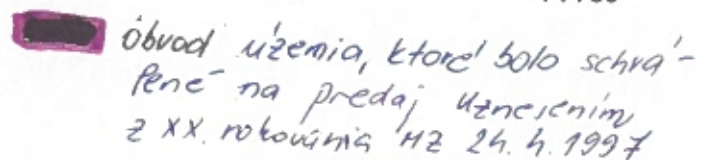 óbvod územia, ktoré bolo schvá-
lené na predaj uznesením
z XX. rokovania MZ 24.4.1997